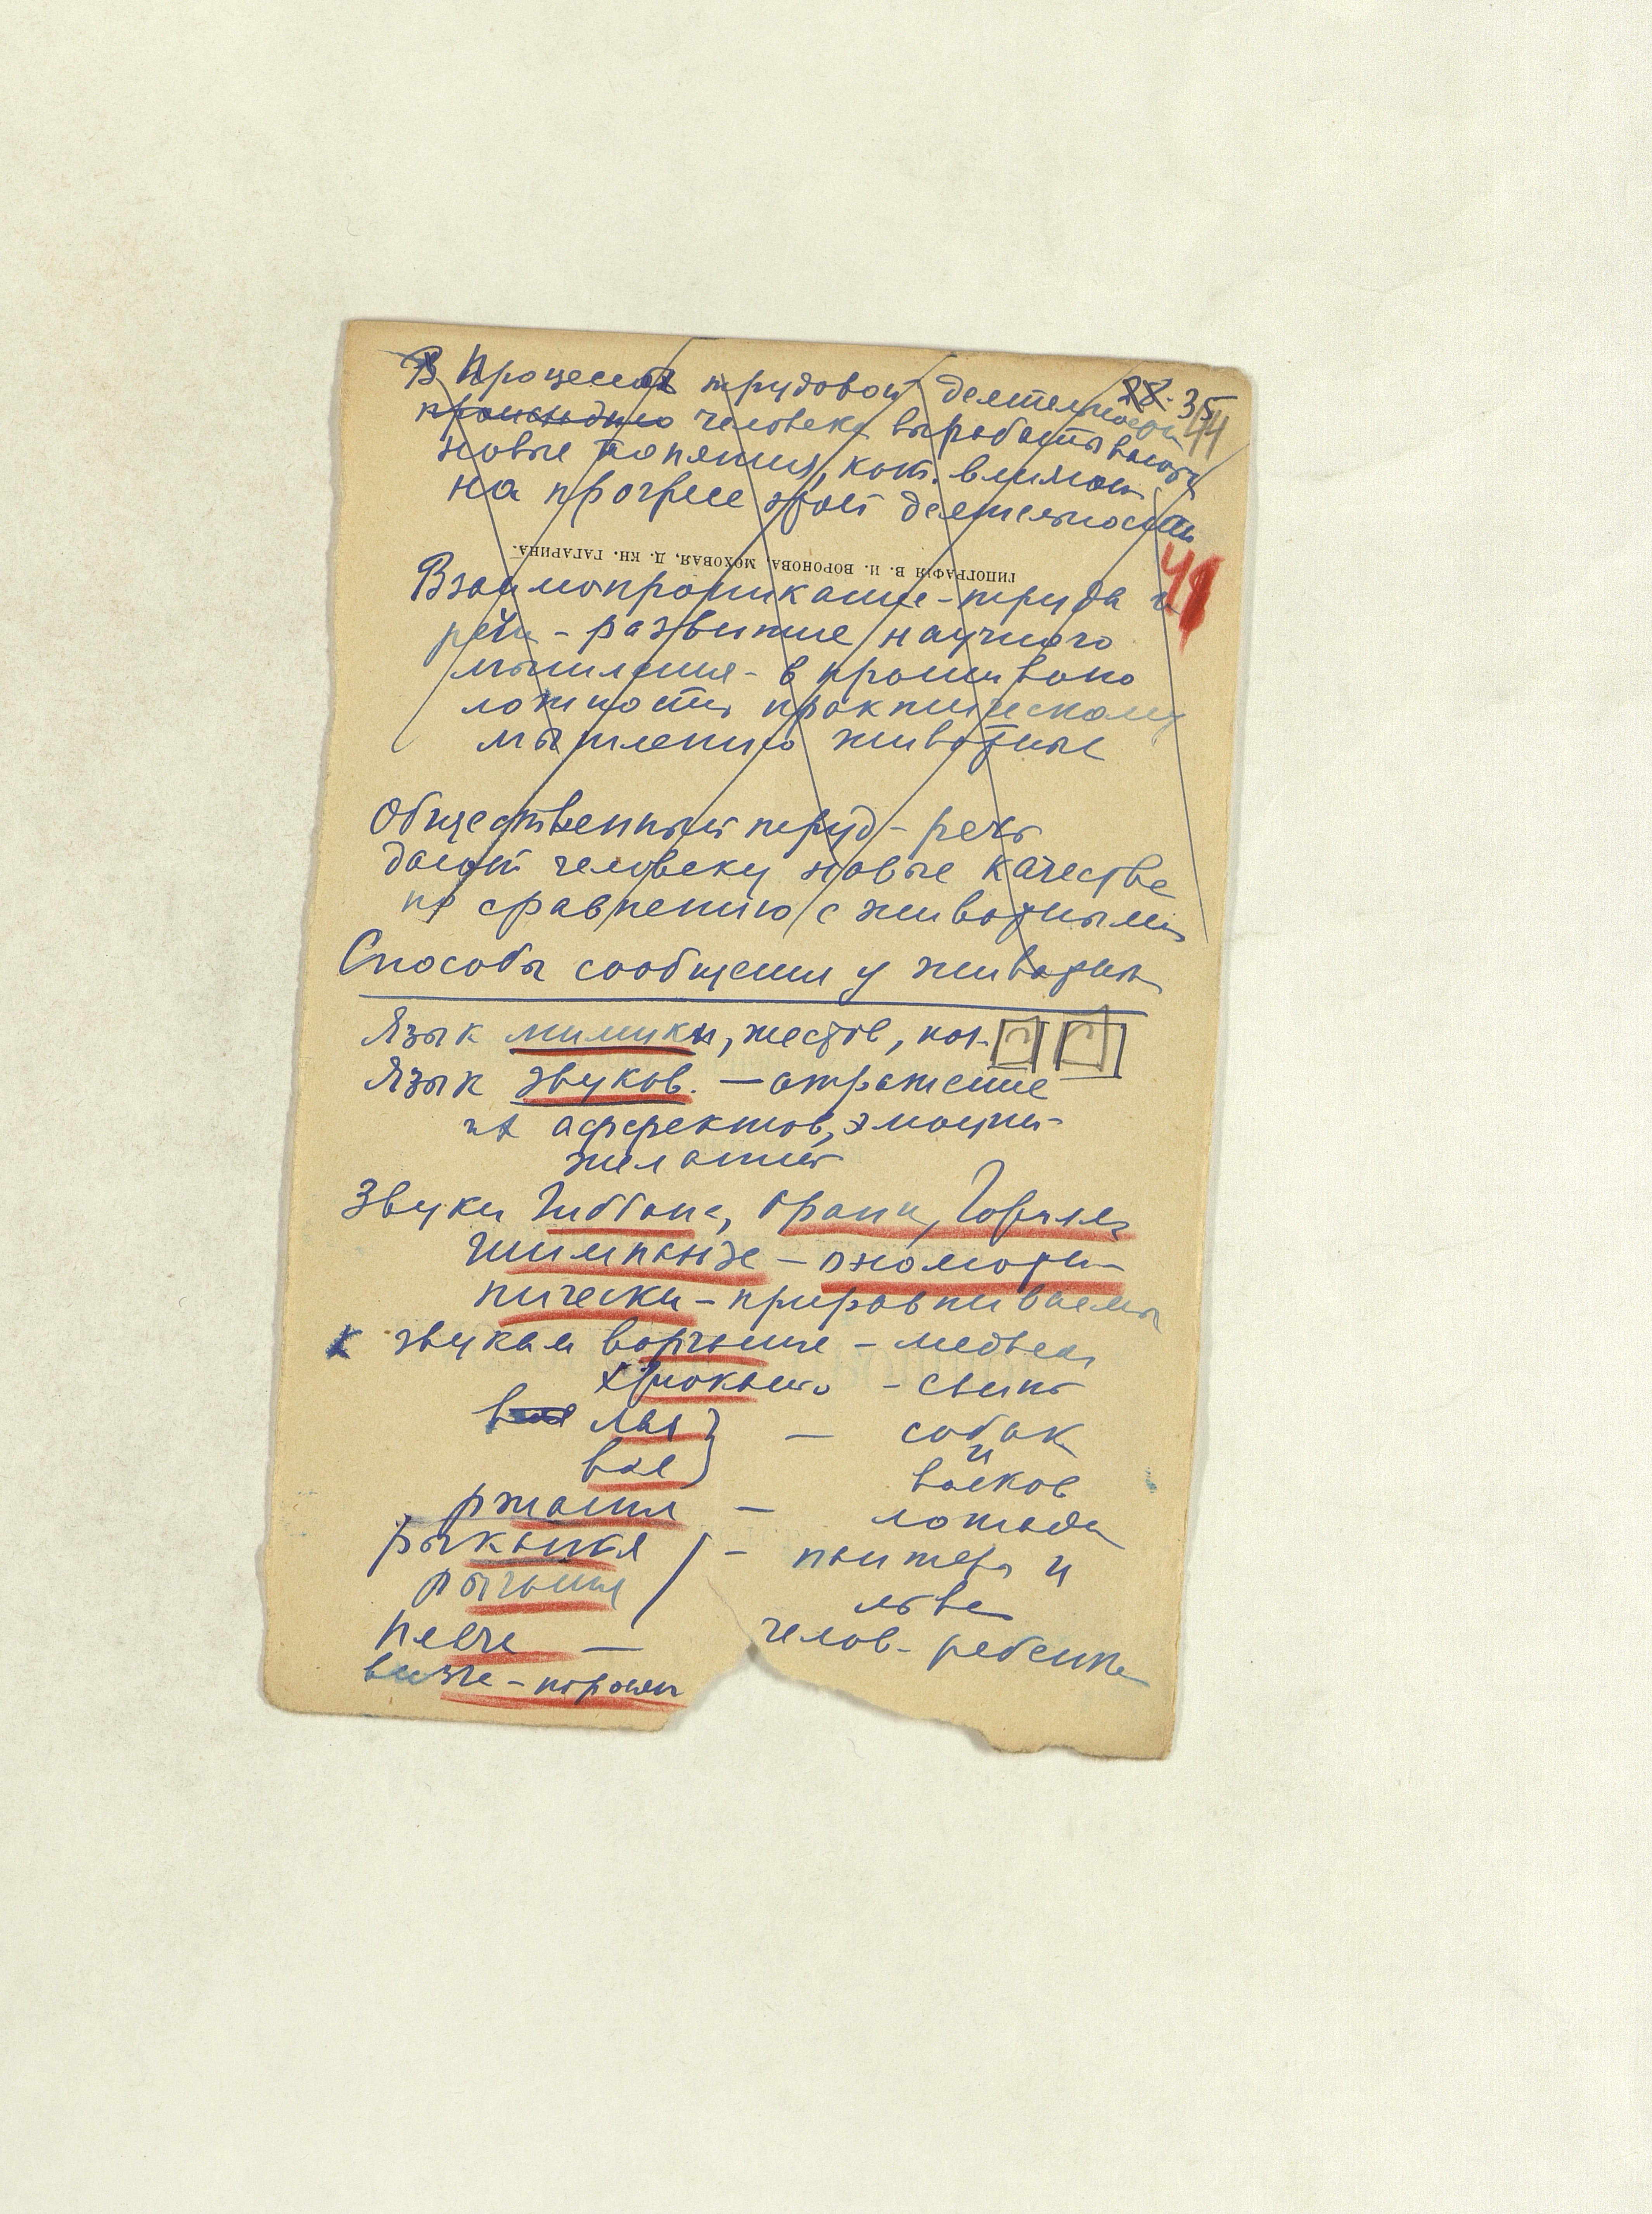 В Процессе трудовой деятельности
28. 35
происходило человека вырабатываются
44
новые понятия, кот. влияют
на прогресс этой деятельности
ТИПОГРАФІЯ В. И. ВОРОНОВА, МОХОВАЯ, Д. КН. ГАГАРИНА.
41
Взаимопроникание - труда и
речи - развитие научного
мышления - в противопо
ложность практическому
мышлению животных
Общественный труд - речь
дают человеку новые качества
по сравнению с животными
Способы сообщения у животных
Язык мимики, жестов,
Язык звуков. — отражение
аффектов, эмоций -
желаний
Звуки Гиббона, Оранга, Гориллы
Шимпанзе - ономато
пически - приравниваемы
к звукам ворчание - медведя
хрюканью - свиньи
воя лая } — собак
и
вое волков
ржания — лошади
рыканья - пантеры и
рычания льва
плаче — челов. ребенка
визге - поросят